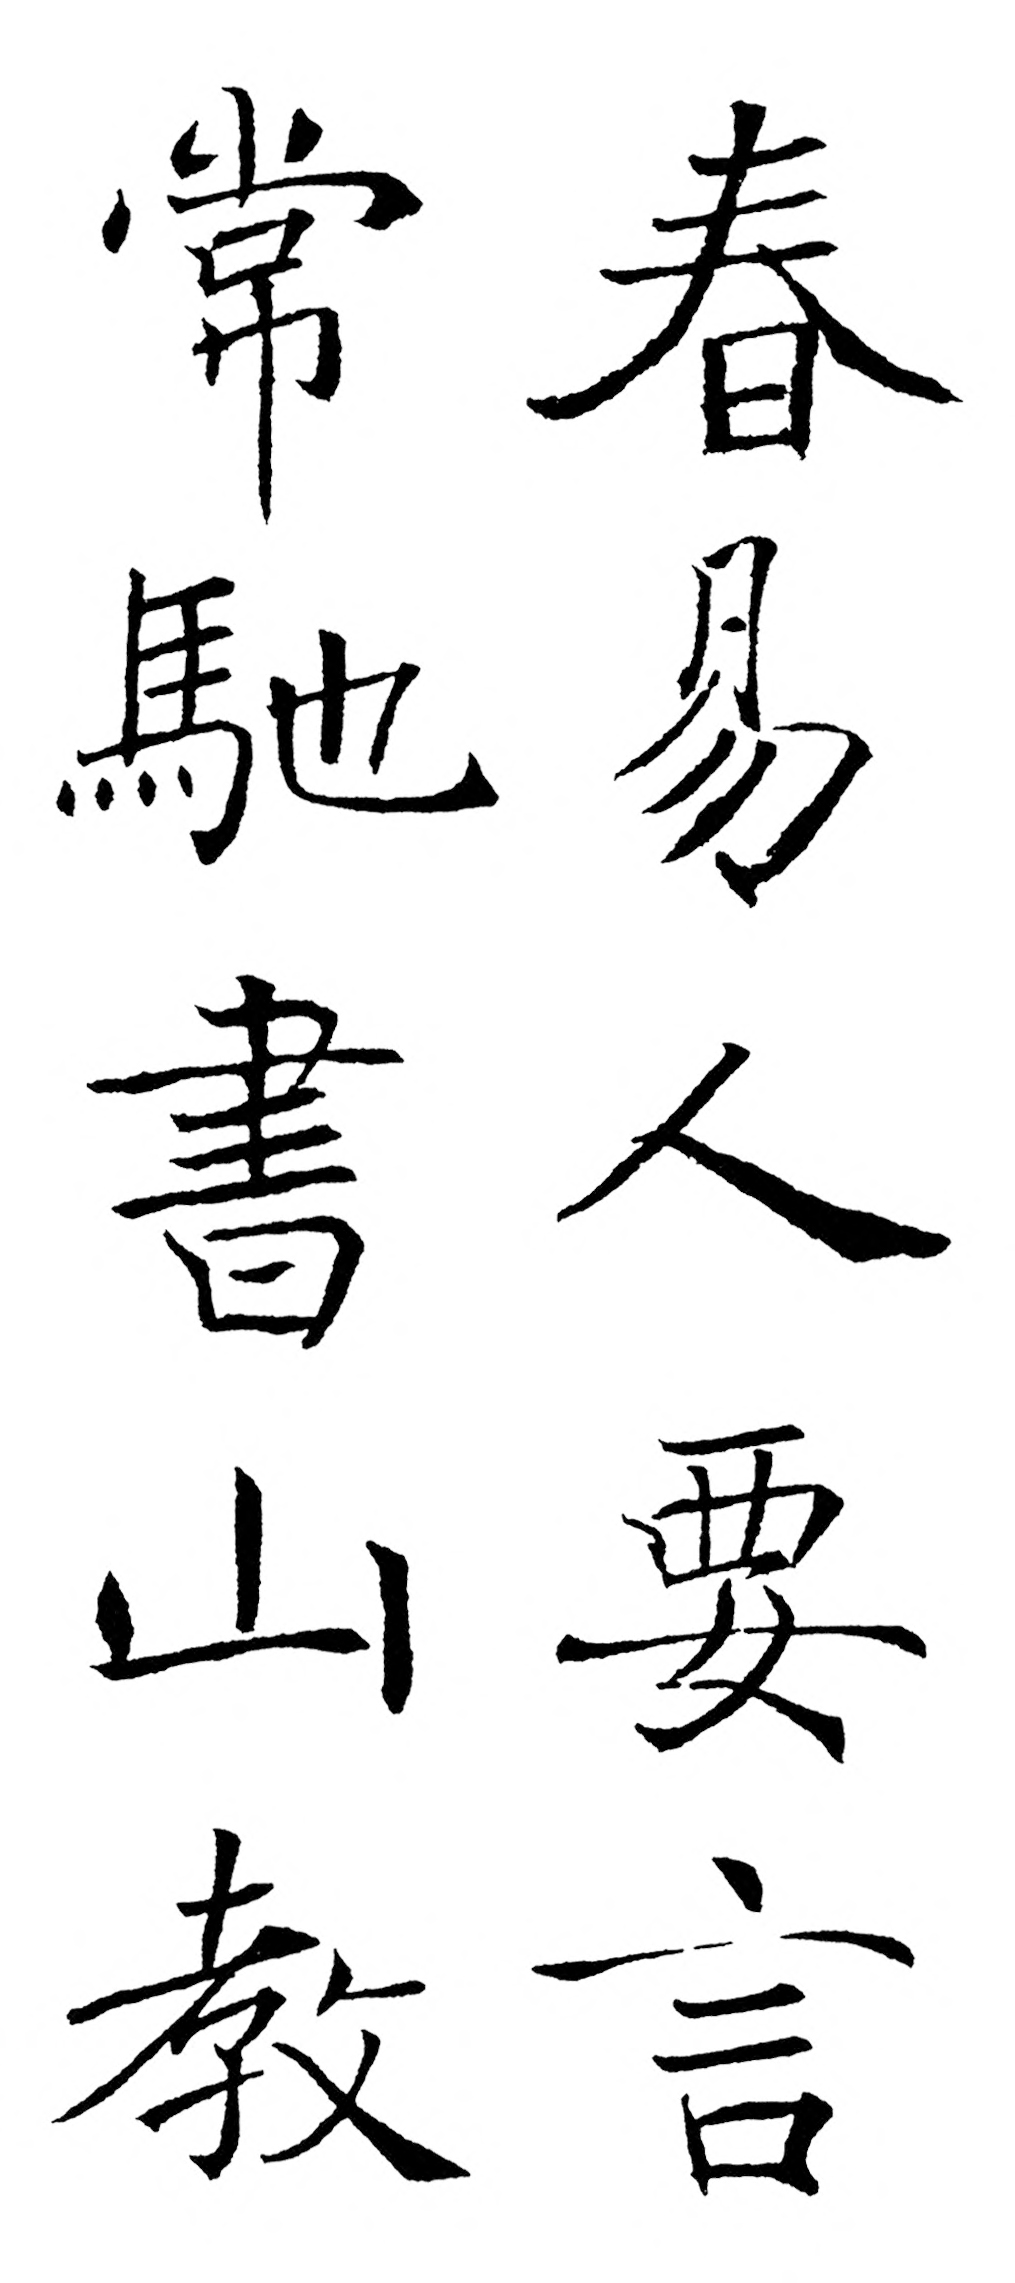 春易人要言
常馳書山教